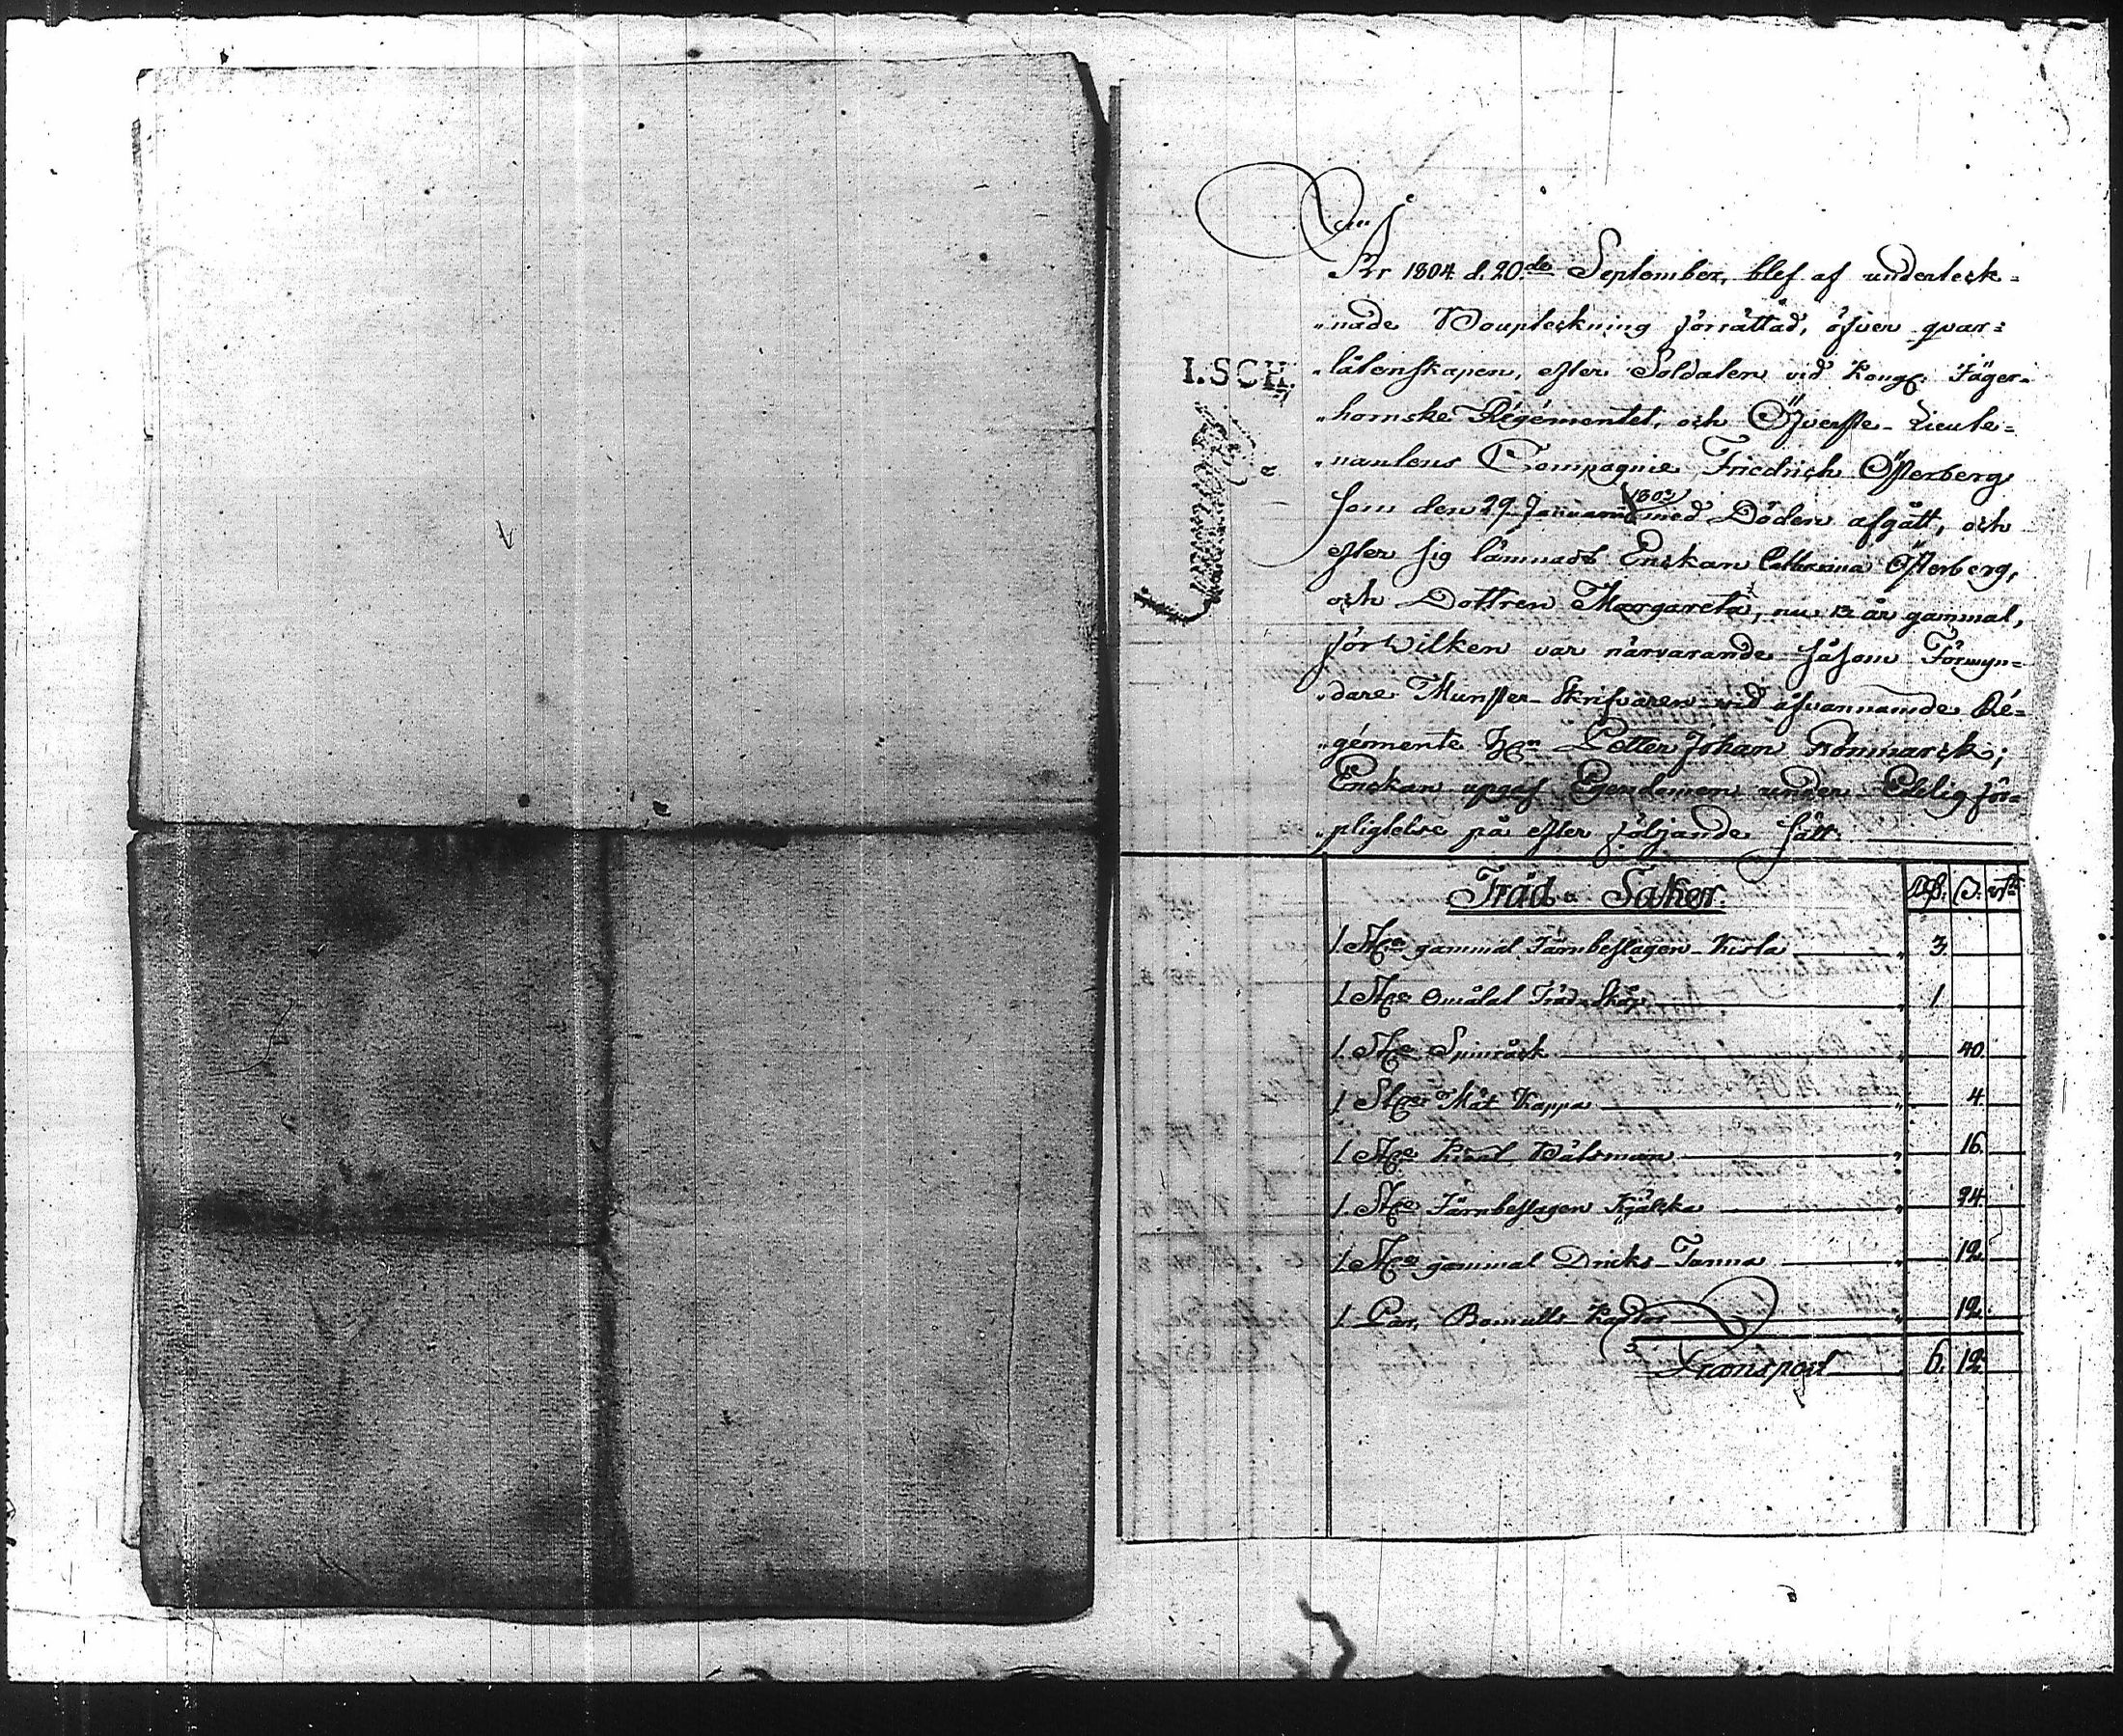 År 1804 d. 20de September, blef af underteck=
"nade Boupteckning förrättad, öfver qvar=
I.SCH.
"låtenskapen, efter Soldaten vid Kongl. Jäger=
"hornske Régémentet, och Öfverste-Lieute=
"nantens Compagnie Friedrich Österberg
som den 29. Januarii 180 med Döden afgått, och
efter sig lämnadt Enckan Catharina Österberg,
och Dottren Margareta, nu 12 år gammal,
för wilken var närvarande såsom Förmyn=
"dare Munster-Skrifvaren vid åfvannämde Ré=
"gémente Petter Johan
Enckan upgaf Egendomen under Edelig för=
"pligtelse på efter följande sätt.
Träd= Saker. Rd: S: rst
1. St: gammal Järnbeslagen Kista 3.
1 St: Omålat Träd-Skåp 1.
1. St: Spinråck 40.
1 St: Måt Kappa 4.
1 St: Båtsman 16.
1. St: Järnbeslagen Kjälcka 24.
1. St: gammal Dricks-Tunna 12.
1 Par, Bomulls Kardor 12.
Transport 6. 12.